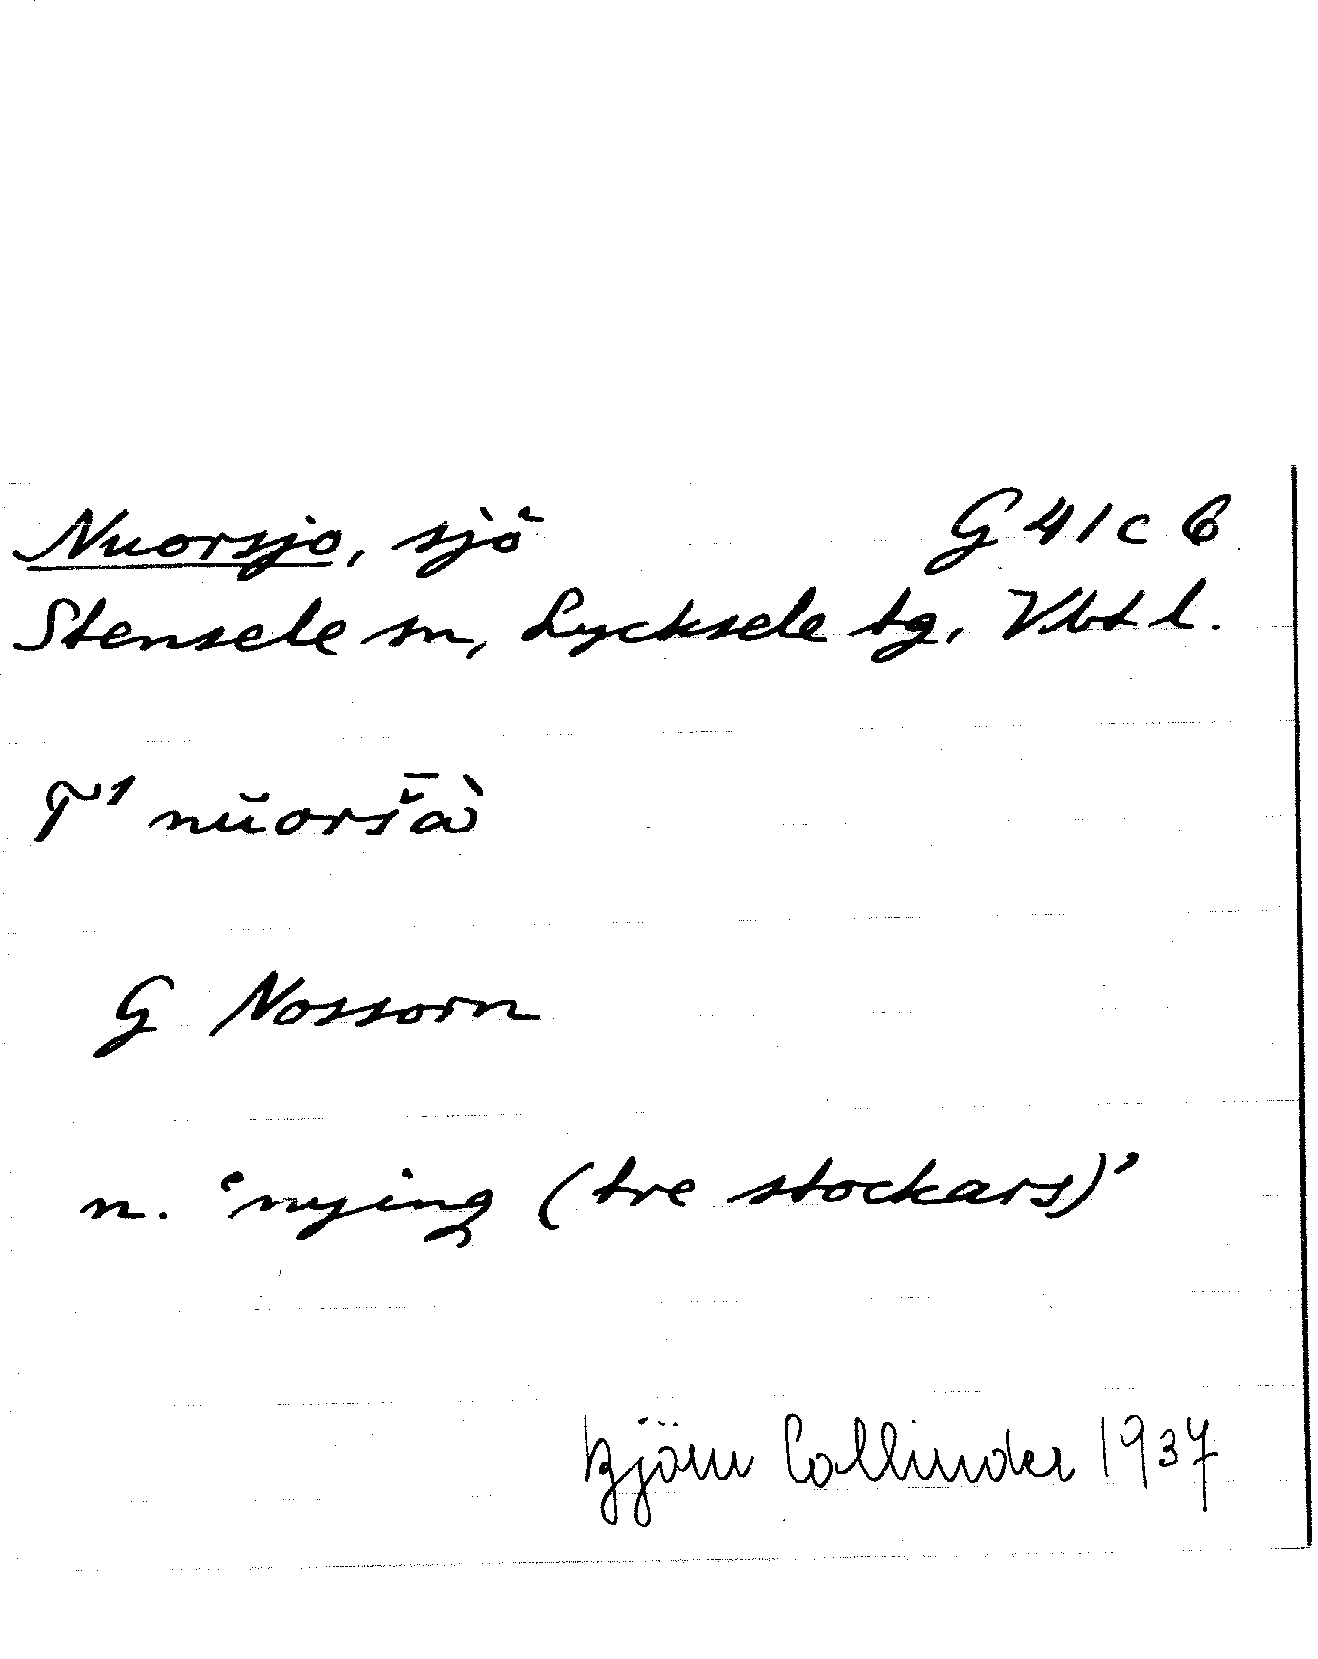 Nuorsjo, sjö G 41 c 6
Stensele sn, Lycksele tg, Vbt l.
T¹ nŭorš̄à
G Nossorn
n. 'nying (tre stockars)'
Björn Collinder 1937